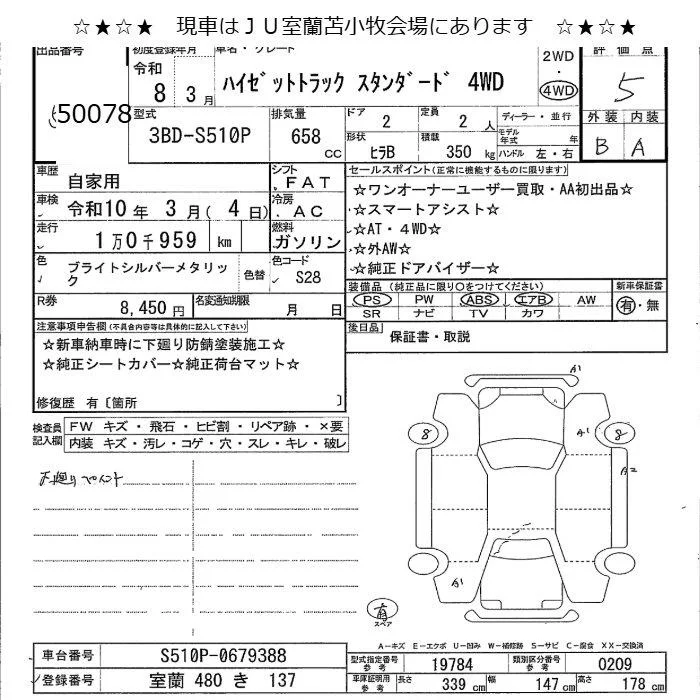 ☆★☆★ 現車はＪＵ室蘭苫小牧会場にあります ☆★☆★
出品番号
50078
初度登録年月
令和
8 3 月
車名・グレード
ハイゼットトラック スタンダード 4WD
2WD
・
4WD
評価点
5
型式
3BD-S510P
排気量
658
cc
ドア
2
定員
2 人
形状
ヒラB
積載
350 kg
ディーラー・並行
モデル年式 年
ハンドル 左・右
外装 内装
B A
車歴
自家用
シフト
FAT
車検
令和10 年 3 月( 4 日)
冷房
AC
走行
1万0千959 km
燃料
ガソリン
色
ブライトシルバーメタリック
色替
色コード
S28
R券
8,450 円
名変通知期限
月 日
セールスポイント(正常に機能するものに限ります)
☆ワンオーナーユーザー買取・AA初出品☆
☆スマートアシスト☆
☆AT・4WD☆
☆外AW☆
☆純正ドアバイザー☆
装備品 (純正品に限り○をつけてください)
PS PW ABS エアB AW
SR ナビ TV カワ
新車保証書
有・無
後日品
保証書・取説
注意事項申告欄(不具合内容等は具体的に記入して下さい)
☆新車納車時に下廻り防錆塗装施工☆
☆純正シートカバー☆純正荷台マット☆
修復歴 有〔箇所 〕
検査員記入欄
FW キズ・飛石・ヒビ割・リペア跡・×要
内装 キズ・汚レ・コゲ・穴・スレ・キレ・破レ
下廻りペイント
A1
A1
8
8
A2
A1
有
スペア
A－キズ E－エクボ U－凹み W－補修跡 S－サビ C－腐食 XX－交換済
車台番号
S510P-0679388
登録番号
室蘭 480 き 137
型式指定番号
参考
19784
類別区分番号
参考
0209
車庫証明用
参考
長さ
339 cm
幅
147 cm
高さ
178 cm